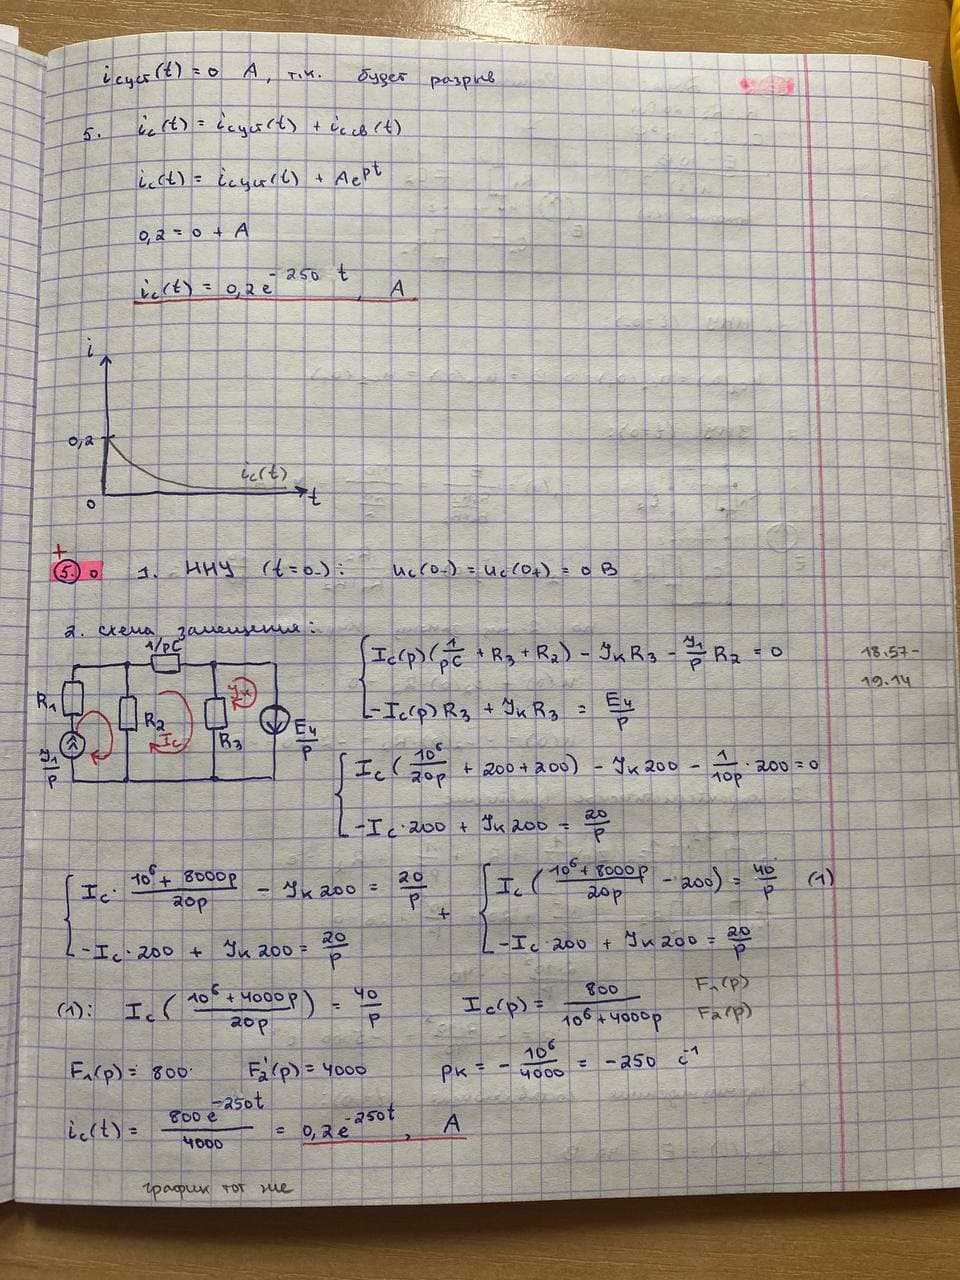 i_cуст(t) = 0 А, т.к. будет разрыв
5. i_c(t) = i_cуст(t) + i_cсв(t)
i_c(t) = i_cуст(t) + Ae^pt
0,2 = 0 + A
i_c(t) = 0,2 e^-250 t, А
i
0,2
i_c(t)
0
t
+
5. 0 1. ННУ (t=0-): u_c(0-) = u_c(0+) = 0 В
2. схема замещения:
1/pC
R1
R2
I_c
Jк
R3
E4/p
J1/p
I_c(p)(1/pC + R3 + R2) - JкR3 - J1/p R2 = 0
-I_c(p)R3 + JкR3 = E4/p
18.57-
19.14
I_c(10^6/20p + 200 + 200) - Jк200 - 1/10p · 200 = 0
-I_c·200 + Jк200 = 20/p
I_c · 10^6 + 8000p/20p - Jк200 = 20/p
-I_c·200 + Jк200 = 20/p
+
I_c(10^6 + 8000p/20p - 200) = 40/p (1)
-I_c·200 + Jк200 = 20/p
(1): I_c(10^6 + 4000p/20p) = 40/p I_c(p) = 800/10^6 + 4000p F1(p) F2(p)
F1(p) = 800 F2'(p) = 4000 pк = - 10^6/4000 = -250 c^-1
i_c(t) = 800e^-250t/4000 = 0,2e^-250t, А
график тот же